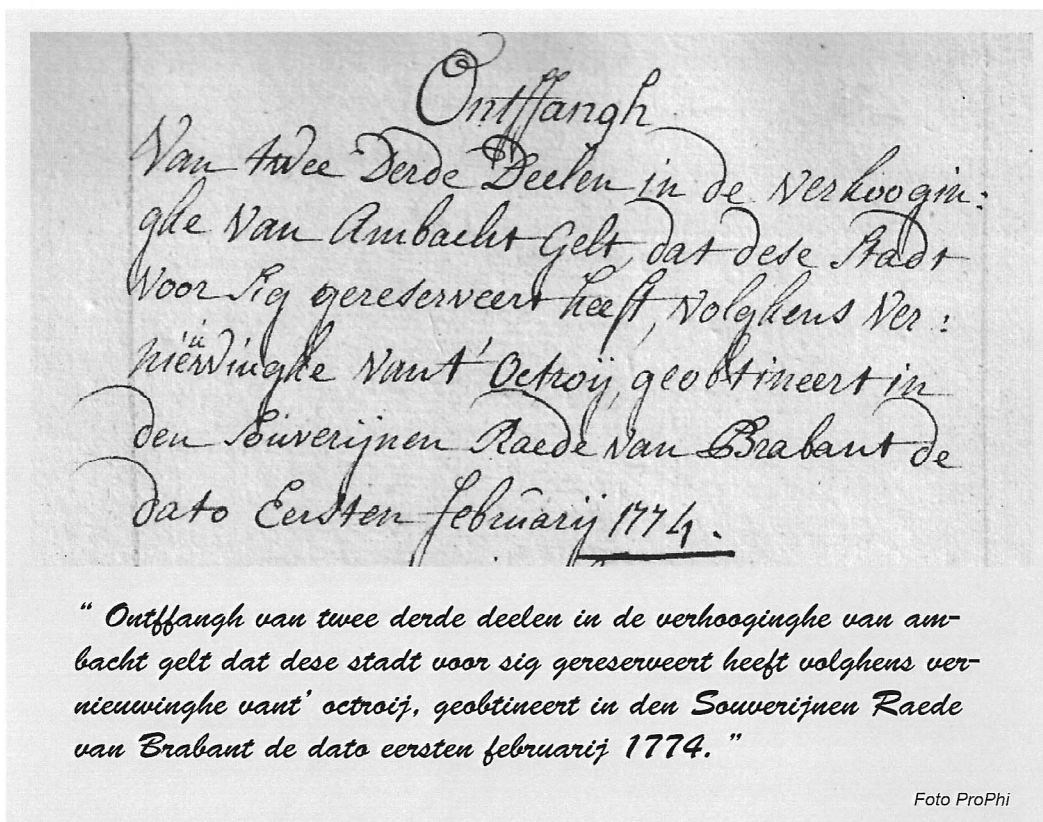 Ontffangh
Van twee Derde Deelen in de Verhoogin:
ghe Van Ambacht Gelt, dat dese Stadt
Voor Sig gereserveert heeft, Volghens Ver:
niëuwinghe Vant' Octroÿ, geobtineert in
den Souverijnen Raede Van Brabant de
dato Eersten februarij 1774.
“ Ontffangh van twee derde deelen in de verhooginghe van am-
bacht gelt dat dese stadt voor sig gereserveert heeft volghens ver-
nieuwinghe vant’ octroij, geobtineert in den Souverijnen Raede
van Brabant de dato eersten februarij 1774. ”
Foto ProPhi